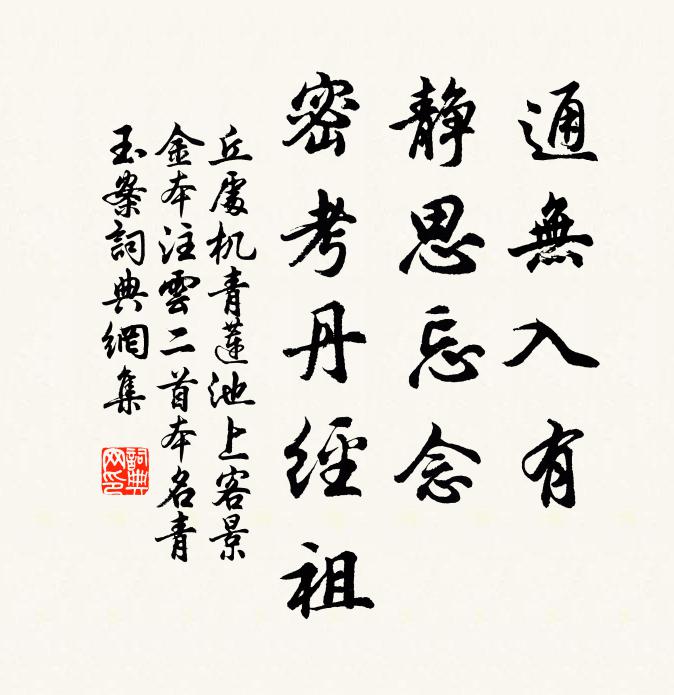 通無入有
靜思忘念
密考丹經祖
丘處机青蓮池上客景
金本注雲二首本名青
玉案詞典網集
詞典网印